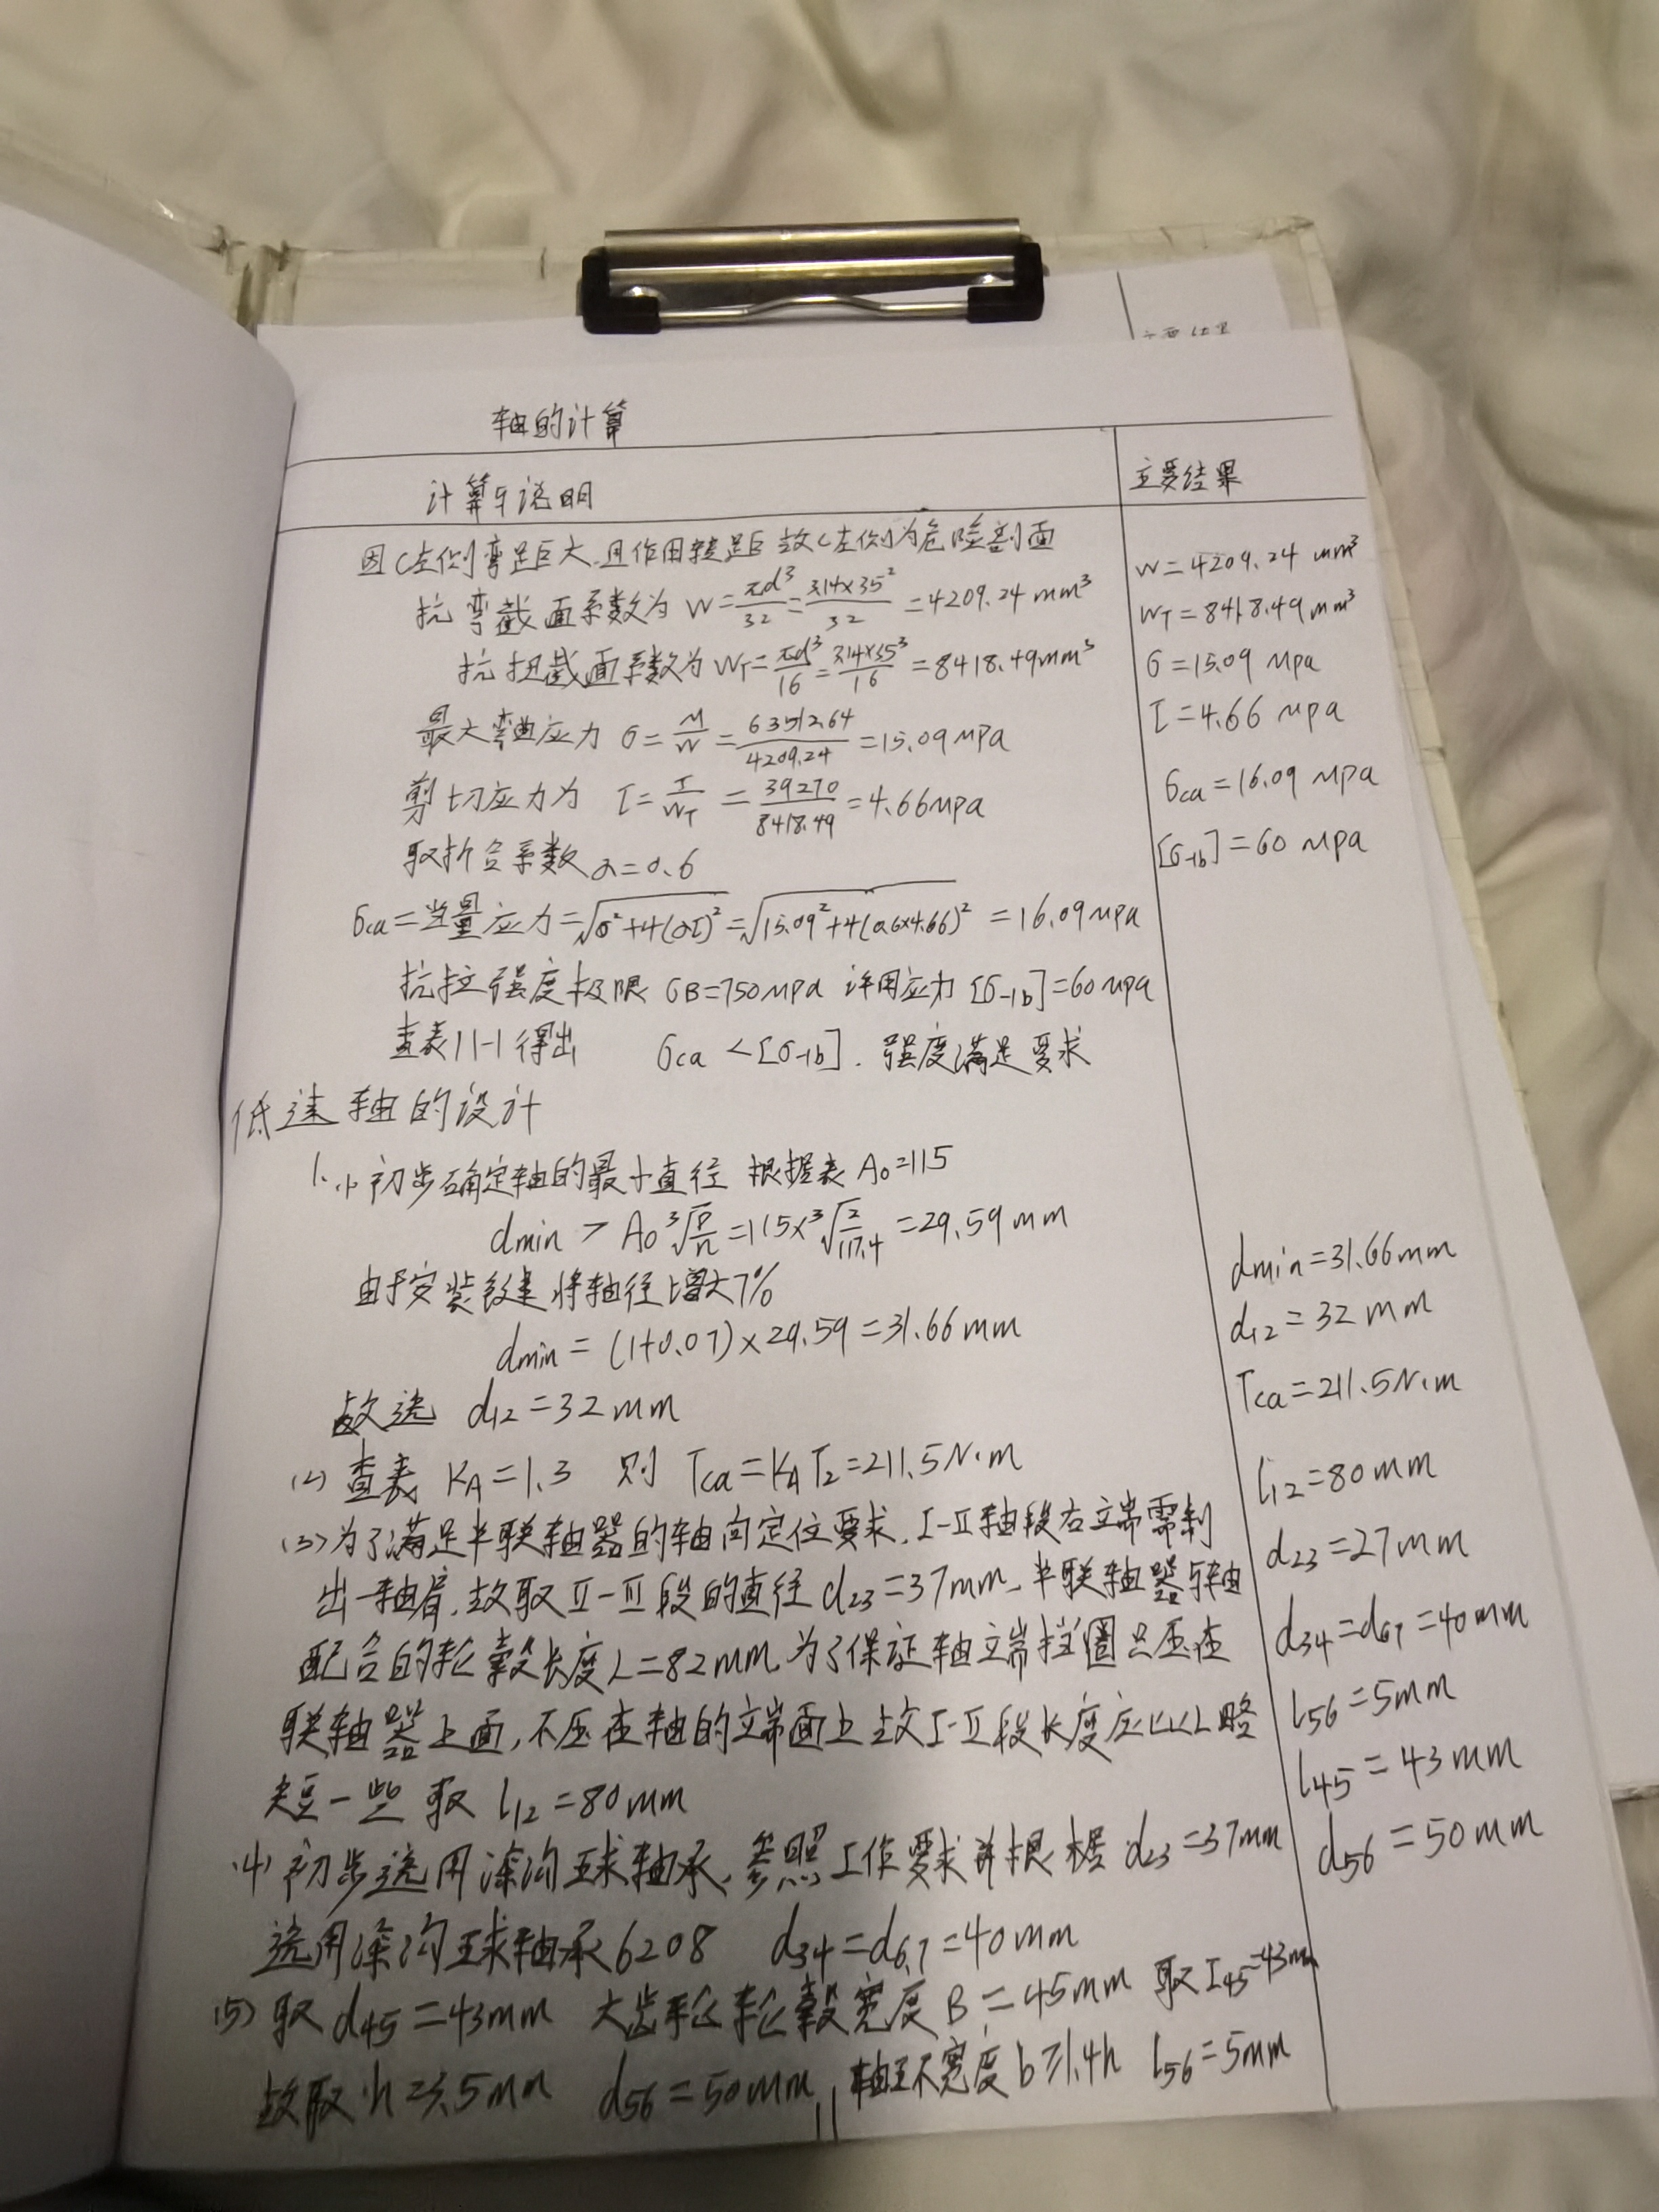 轴的计算
计算与说明
主要结果
因C左侧弯距大且作用转距故C左侧为危险剖面
抗弯截面系数为 W=πd³/32=3.14×35²/32=4209.24mm³
抗扭截面系数为 WT=πd³/16=3.14×35³/16=8418.49mm³
最大弯曲应力 σ=M/W=63512.64/4209.24=15.09MPa
剪切应力为 τ=T/WT=39270/8418.49=4.66MPa
取折合系数 α=0.6
σca=当量应力=√σ²+4(ατ)²=√15.09²+4(0.6×4.66)²=16.09MPa
抗拉强度极限 σB=750MPa 许用应力 [σ-1b]=60MPa
查表11-1得出 σca<[σ-1b]. 强度满足要求
低速轴的设计
1.(1)初步确定轴的最小直径 根据表 A0=115
dmin > A0 ³√P/n=115׳√2/117.4=29.59mm
由于安装键将轴径增大7%
dmin=(1+0.07)×29.59=31.66mm
故选 d12=32mm
(2)查表 KA=1.3 则 Tca=KAT2=211.5N·m
(3)为了满足半联轴器的轴向定位要求,I-II轴段右端需制
出一轴肩,故取II-III段的直径d23=37mm,半联轴器与轴
配合的轮毂长度L=82mm,为了保证轴端挡圈只压在
联轴器上面,不压在轴的端面上 故I-II段长度应比L略
短一些 取 l12=80mm
(4)初步选用深沟球轴承,参照工作要求并根据 d23=37mm
选用深沟球轴承6208 d34=d67=40mm
(5)取 d45=43mm 大齿轮轮毂宽度B=45mm 取 I45=43mm
故取 h=3.5mm d56=50mm, 轴环宽度 b≥1.4h l56=5mm
11
W=4209.24 mm³
WT=8418.49mm³
σ=15.09 MPa
τ=4.66 MPa
σca=16.09 MPa
[σ-1b]=60 MPa
dmin=31.66mm
d12=32mm
Tca=211.5N·m
l12=80mm
d23=27mm
d34=d67=40mm
l56=5mm
l45=43mm
d56=50mm